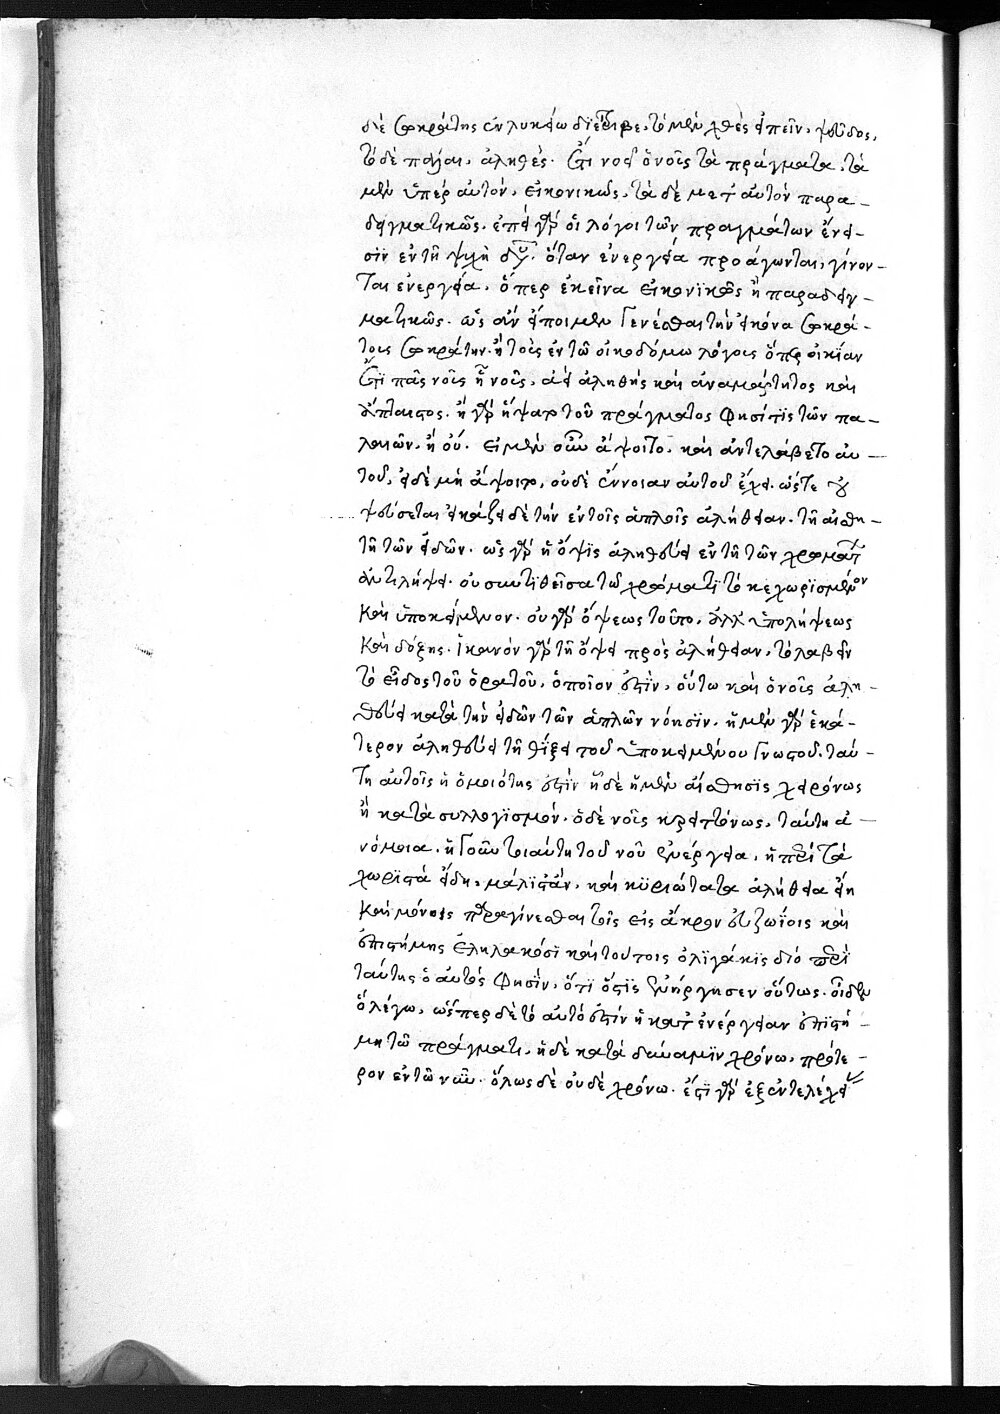 δὲ σωκράτης ἐν λυκείω διέτριβε, τὸ μὲν χθὲς εἰπεῖν, ψεῦδος,
τὸ δὲ πάλαι, ἀληθές. Ὅτι νοεῖ ὁ νοῦς τὰ πράγματα, τὰ
μὲν ὑπὲρ αὐτὸν, εἰκονικῶς, τὰ δὲ μετ' αὐτὸν παρα-
δειγματικῶς. ἐπεὶ γὰρ οἱ λόγοι τῶν πραγμάτων ἔνει-
σιν ἐν τῆ ψυχῆ ὅταν ἐνεργεία προάγωνται, γίνον-
ται ἐνεργεία, ὅπερ ἐκεῖνα εἰκονικῶς ἢ παραδειγ-
ματικῶς. ὡς ἂν εἴποιμεν γενέσθαι τὴν εἰκόνα σωκρά-
τους σωκράτην. ἢ τοὺς ἐν τῶ οἰκοδόμω λόγους ὅπερ οἰκίαν
Ὅτι πᾶς νοῦς ἧ νοῦς, ἀεὶ ἀληθὴς καὶ ἀναμάρτητος καὶ
ἄπταιστος. ἢ γὰρ ἥψατο τοῦ πράγματος φησί τις τῶν πα-
λαιῶν, ἢ οὔ. εἰ μὲν οὖν ἅψοιτο, καὶ ἀντελάβετο αὐ-
τοῦ, εἰ δὲ μὴ ἅψοιτο, οὐδὲ ἔννοιαν αὐτοῦ ἔχει. ὥστε οὐ
ψεύσεται εἰκάζει δὲ τὴν ἐν τοῖς ἁπλοῖς ἀλήθειαν. τῆ αἰσθη-
τῆ τῶν εἰδῶν. ὡς γὰρ ἡ ὄψις ἀληθεύει ἐν τῆ τῶν χρωμάτων
ἀντιλήψει. οὐ συντιθεῖσα τῶ χρώματι τὸ κεχωρισμένον
καὶ ὑποκείμενον. οὐ γὰρ ὄψεως τοῦτο, ἀλλ' ὑπολήψεως
καὶ δόξης. ἱκανὸν γὰρ τῆ ὄψει πρὸς ἀλήθειαν, τὸ λαβεῖν
τὸ εἶδος τοῦ ὁρατοῦ, ὁποῖον ἐστὶν, οὕτω καὶ ὁ νοῦς ἀλη-
θεύει κατὰ τὴν εἰδῶν τῶν ἁπλῶν νόησιν. ἧ μὲν γὰρ ἑκά-
τερον ἀληθεύει τῆ θίξει τοῦ ὑποκειμένου γνωστοῦ. ταύ-
τη αὐτοῖς ἡ ὁμοιότης ἐστὶν ἧ δὲ ἡ μὲν αἴσθησις χειρόνως
ἢ κατὰ συλλογισμόν. ὁ δὲ νοῦς κρειττόνως, ταύτη ἀ-
νόμοια. ἡ γοῦν τοιαύτη τοῦ νοῦ ἐνέργεια, ἡ περὶ τὰ
χωριστὰ εἴδη, μάλιστ' ἂν, καὶ κυριώτατα ἀλήθεια εἴη
καὶ μόνοις παραγίνεσθαι τοῖς εἰς ἄκρον εὐζωΐας καὶ
ἐπιστήμης ἐληλακόσι καὶ τούτοις ὀλιγάκις διὸ περὶ
ταύτης ὁ αὐτός φησὶν, ὅτι ὅστις ἐνήργησεν οὕτως. οἶδεν
ὃ λέγω, ὥσπερ δὲ τὸ αὐτὸ ἐστὶν ἡ κατ' ἐνέργειαν ἐπιστή-
μη τῶ πράγματι, ἡ δὲ κατὰ δύναμιν χρόνω, πρότε-
ρον ἐν τῶ νῶ. ὅλως δὲ οὐδὲ χρόνω. ἔστι γὰρ ἐξ ἐντελεχεία